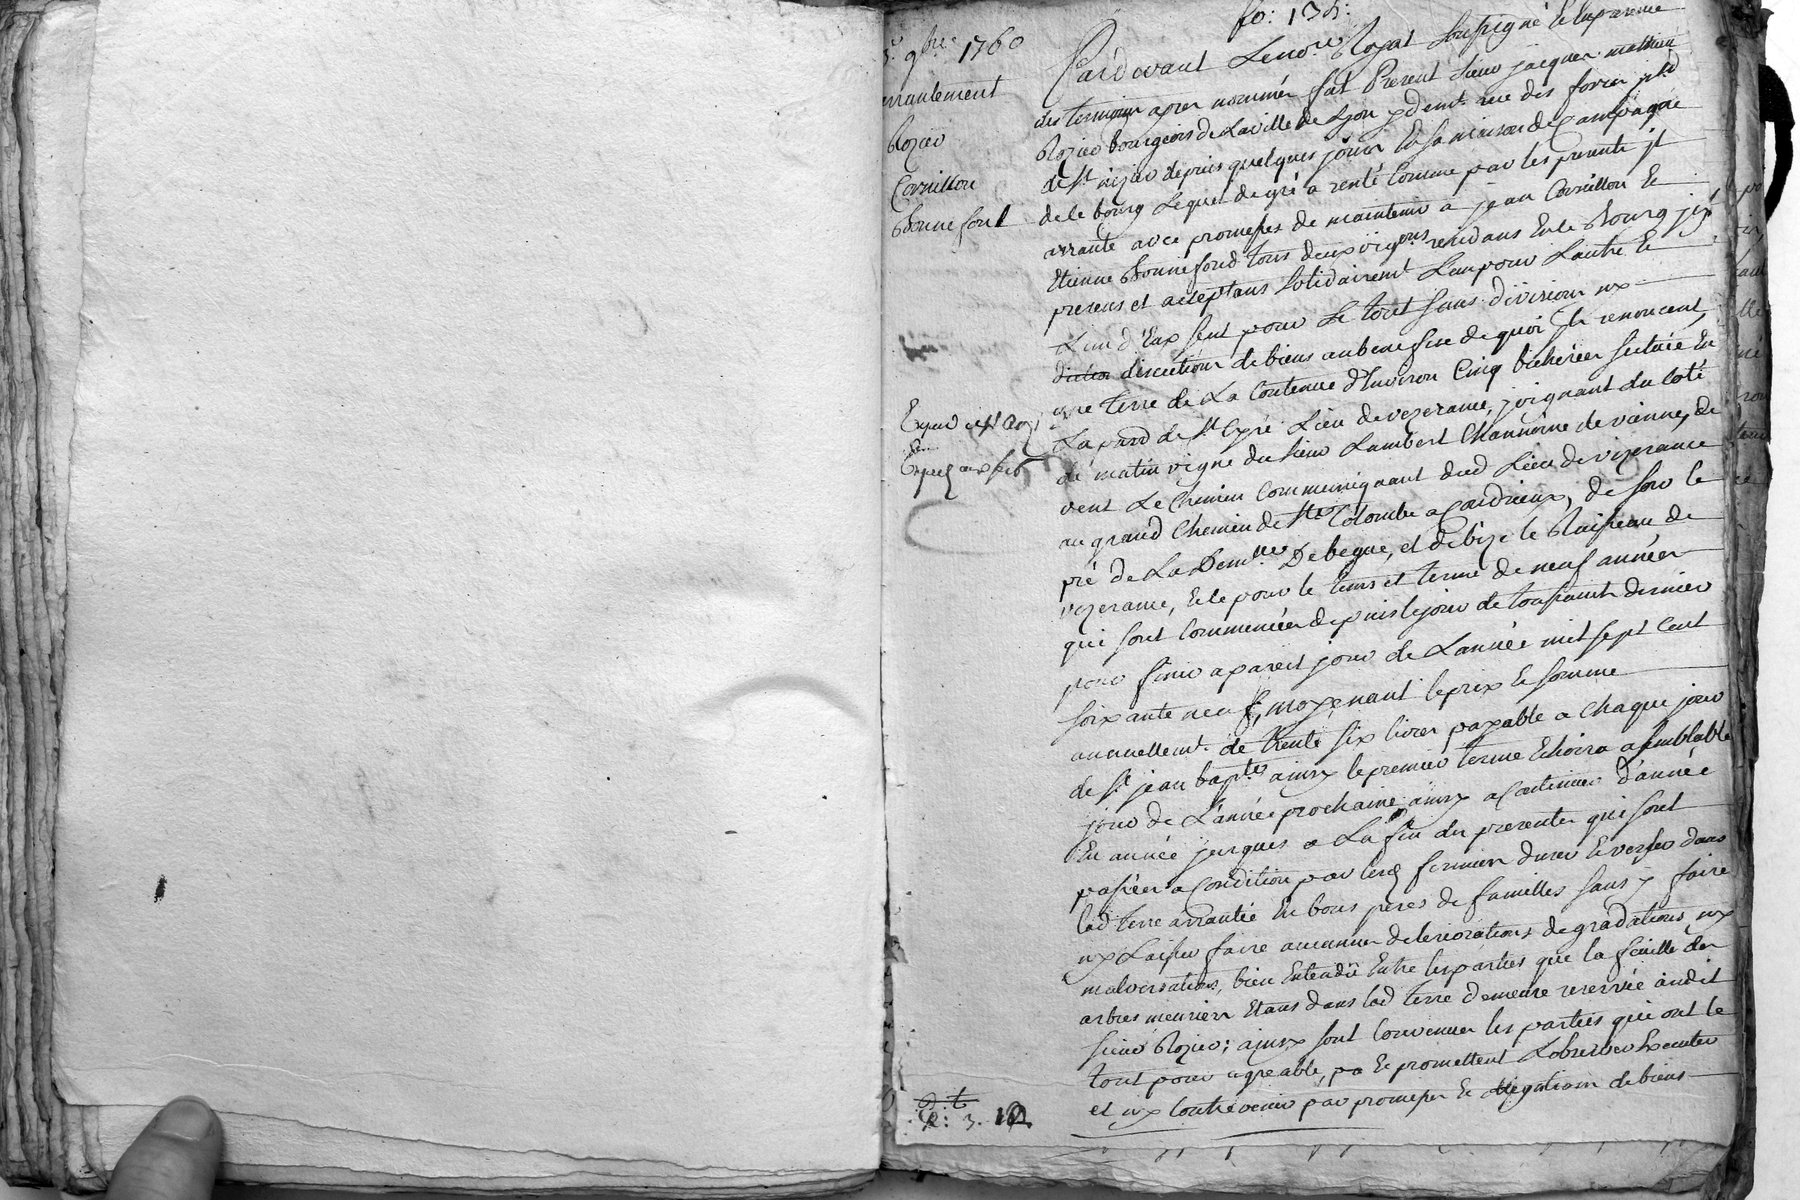 fo: 135:
9bre 1760
arrantement
Rozier
Cornillon
Bonnefond
Pardevant Le no.re Royal soussigné Et en presence
des temoins apres nommés fut Present sieur jacques mathieu
Rozier bourgeois de La ville de Lyon y dem.t rue des forces p.sse
de s.t nizier depuis quelques jours En sa maison de Campagne
de le bourg Lequel de gré a renté Comme par les presente jl
arrante avec promesses de maintenir a jean Cornillon Et
Etienne Bonnefond tous deux vig.ons residans En le Bourg jcy
presens et acceptans solidairem.t L'un pour L'autre Et
L'un d'Eux seul pour Le tout sans division ny
discution de biens au benefice de quoi ils renoncent,
une terre de La Contenue d'Environ Cinq bicherées scituée En
La par.d de s.t Cyré Lieu de vezerance, joignant du Coté
de matin vigne du sieur Lambert Channoine de vienne, de
vent Le Chemin Communiquant dud Lieu de vezerance
au grand Chemin de s.te Colombe a Condrieux, de soir le
pré de La Dem.lle Debegue, et de bize le Ruisseau de
vezerance, Et le pour le tems et terme de neuf années
qui sont Commencées depuis le jour de toussaint dernier
pour finir a pareil jour de L'année mil sept Cent
soixante neuf, moyenant le prix Et somme
annuellem.t de trente six livres payable a Chaque jour
de s.t jean bapt.te ainsy le premier terme Echoira a semblable
jour de L'année prochaine ainsy a Continuer d'année
En année jusques a La fin du presentes qui sont
passées a Condition par lesd fermiers d'user Et verser dans
lad terre arrantée En bons peres de familles sans y faire
ny Laisser faire aucunnes deteriorations degradations ny
malversations, bien Entendû Entre les parties que la feuille des
arbres meuriers Etans dans lad terre demeure reservée audit
sieur Rozier; ainsy sont Convenues les parties qui ont le
tout pour agreable, pa Et promettent L'observer Executer
et ny Contrevenir par promesses Et obligations de biens
Exped aux
R: 3. 12